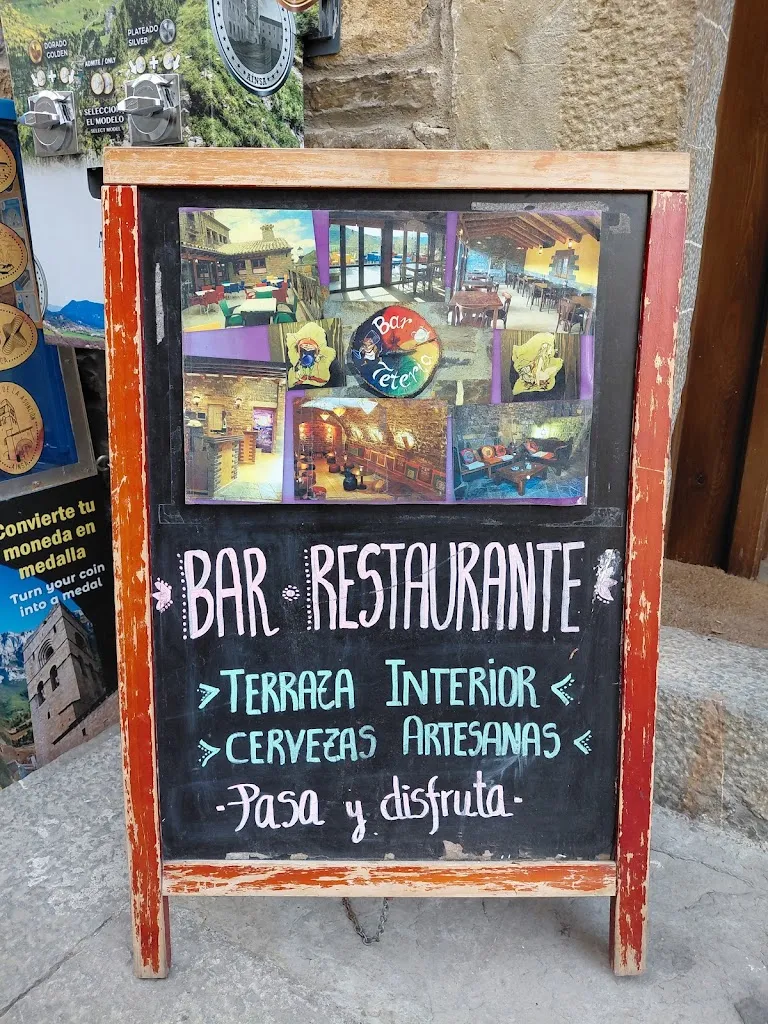 DORADO
GOLDEN
PLATEADO
SILVER
ADMITE / ONLY
SELECCION
EL MODELO
SELECT MODEL
AINSA
Bar
Teteria
BAR RESTAURANTE
TERRAZA INTERIOR
CERVEZAS ARTESANAS
-Pasa y disfruta-
Convierte tu
moneda en
medalla
Turn your coin
into a medal